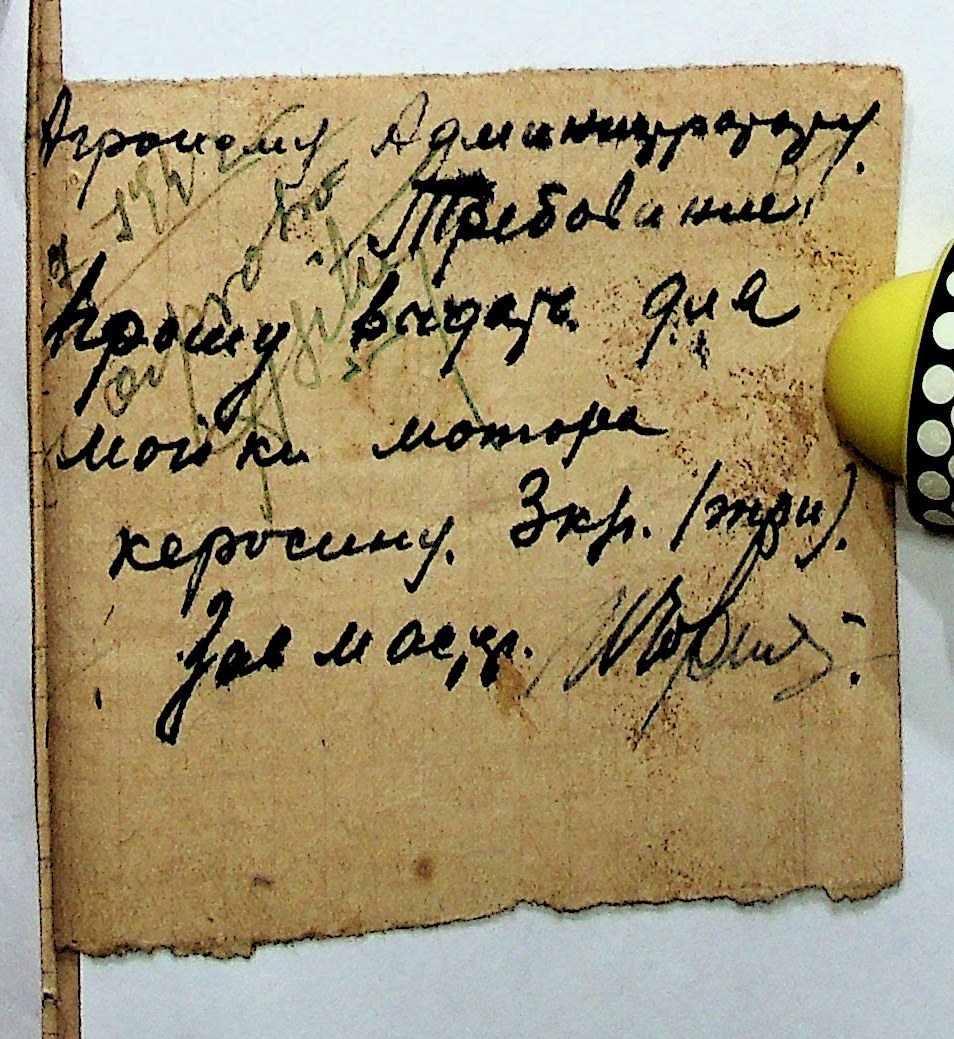 Агроному Администратору.
Требование
Прошу выдать для
мойки мотора
керосину. 3 кгр. (три).
Зав маст.